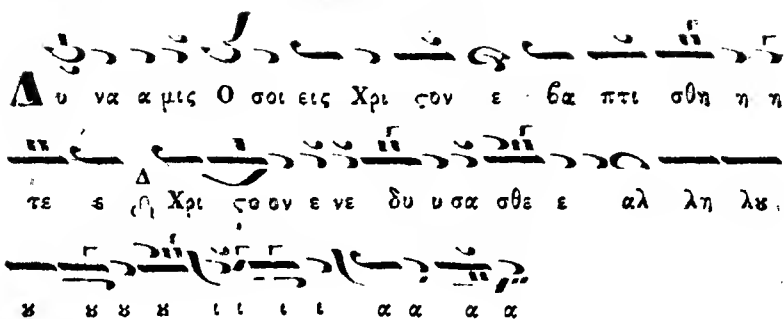 Δυ να α μις Ο σοι εις Χρι ϛον ε βα πτι σθη η η
τε ε Δ Χρι ϛο ον ε νε δυ υ σα σθε ε αλ λη λȣ
ȣ ȣ ȣ ȣ ι ι ι ι α α α α